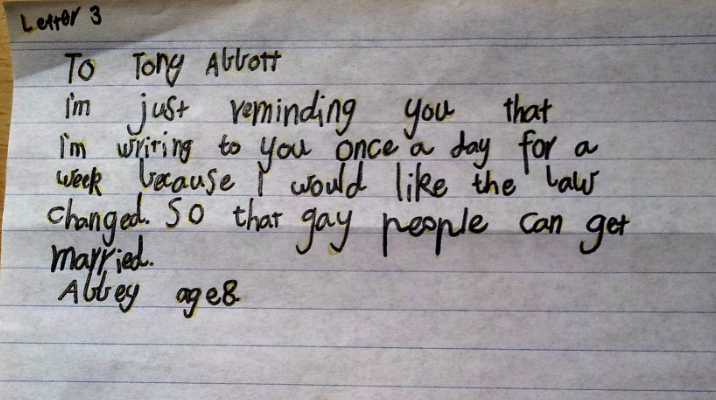 Letter 3
To Tony Abbott
i'm just reminding you that
I'm writing to you once a day for a
week because I would like the law
changed. So that gay people can get
married.
Abbey age8